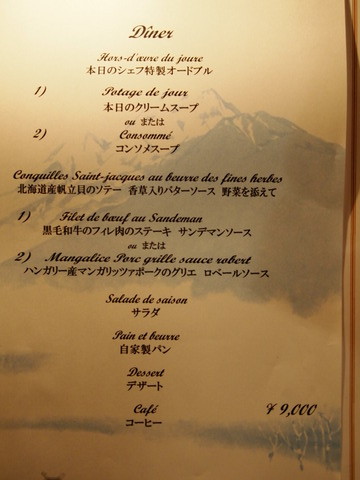 Dîner
Hors-d'œvre du joure
本日のシェフ特製オードブル
1) Potage de jour
本日のクリームスープ
ou または
2) Consommé
コンソメスープ
Conquilles Saint-jacques au beurre des fines herbes
北海道産帆立貝のソテー 香草入りバターソース 野菜を添えて
1) Filet de bœuf au Sandeman
黒毛和牛のフィレ肉のステーキ サンデマンソース
ou または
2) Mangalice Porc grille sauce robert
ハンガリー産マンガリッツァポークのグリエ ロベールソース
Salade de saison
サラダ
Pain et beurre
自家製パン
Dessert
デザート
Café ¥ 9,000
コーヒー